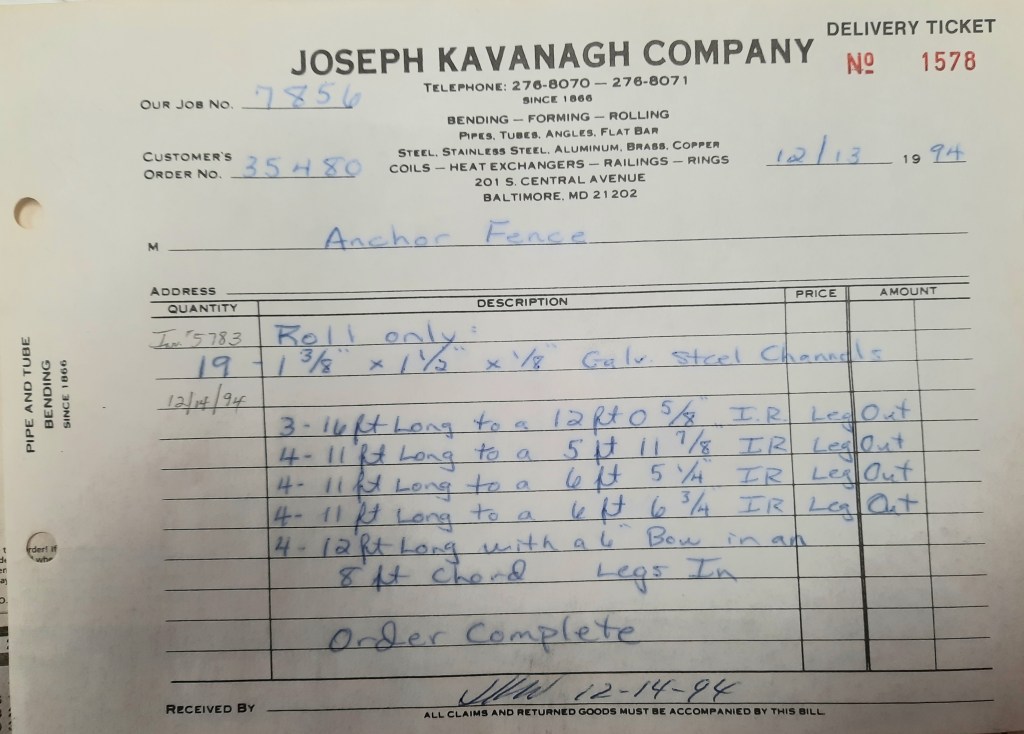 DELIVERY TICKET
JOSEPH KAVANAGH COMPANY
No 1578
TELEPHONE: 276-8070 — 276-8071
SINCE 1866
OUR JOB NO. 7856
BENDING — FORMING — ROLLING
PIPES, TUBES, ANGLES, FLAT BAR
STEEL, STAINLESS STEEL, ALUMINUM, BRASS, COPPER
COILS — HEAT EXCHANGERS — RAILINGS — RINGS
CUSTOMER'S
ORDER NO. 35480
12/13 1994
201 S. CENTRAL AVENUE
BALTIMORE, MD 21202
M Anchor Fence
ADDRESS
QUANTITY DESCRIPTION PRICE AMOUNT
#5783 Roll only:
19 - 1 3/8" x 1 1/2" x 1/8" Galv. Steel Channels
12/14/94
3 - 16 ft Long to a 12 ft 0 5/8" I.R. Leg Out
4 - 11 ft Long to a 5 ft 11 7/8 IR Leg Out
4 - 11 ft Long to a 6 ft 5 1/4" IR Leg Out
4 - 11 ft Long to a 6 ft 6 3/4 IR Leg Out
4 - 12 ft Long with a 6" Bow in an
8 ft Chord Legs In
Order Complete
RECEIVED BY 12-14-94
ALL CLAIMS AND RETURNED GOODS MUST BE ACCOMPANIED BY THIS BILL.
PIPE AND TUBE
BENDING
SINCE 1866